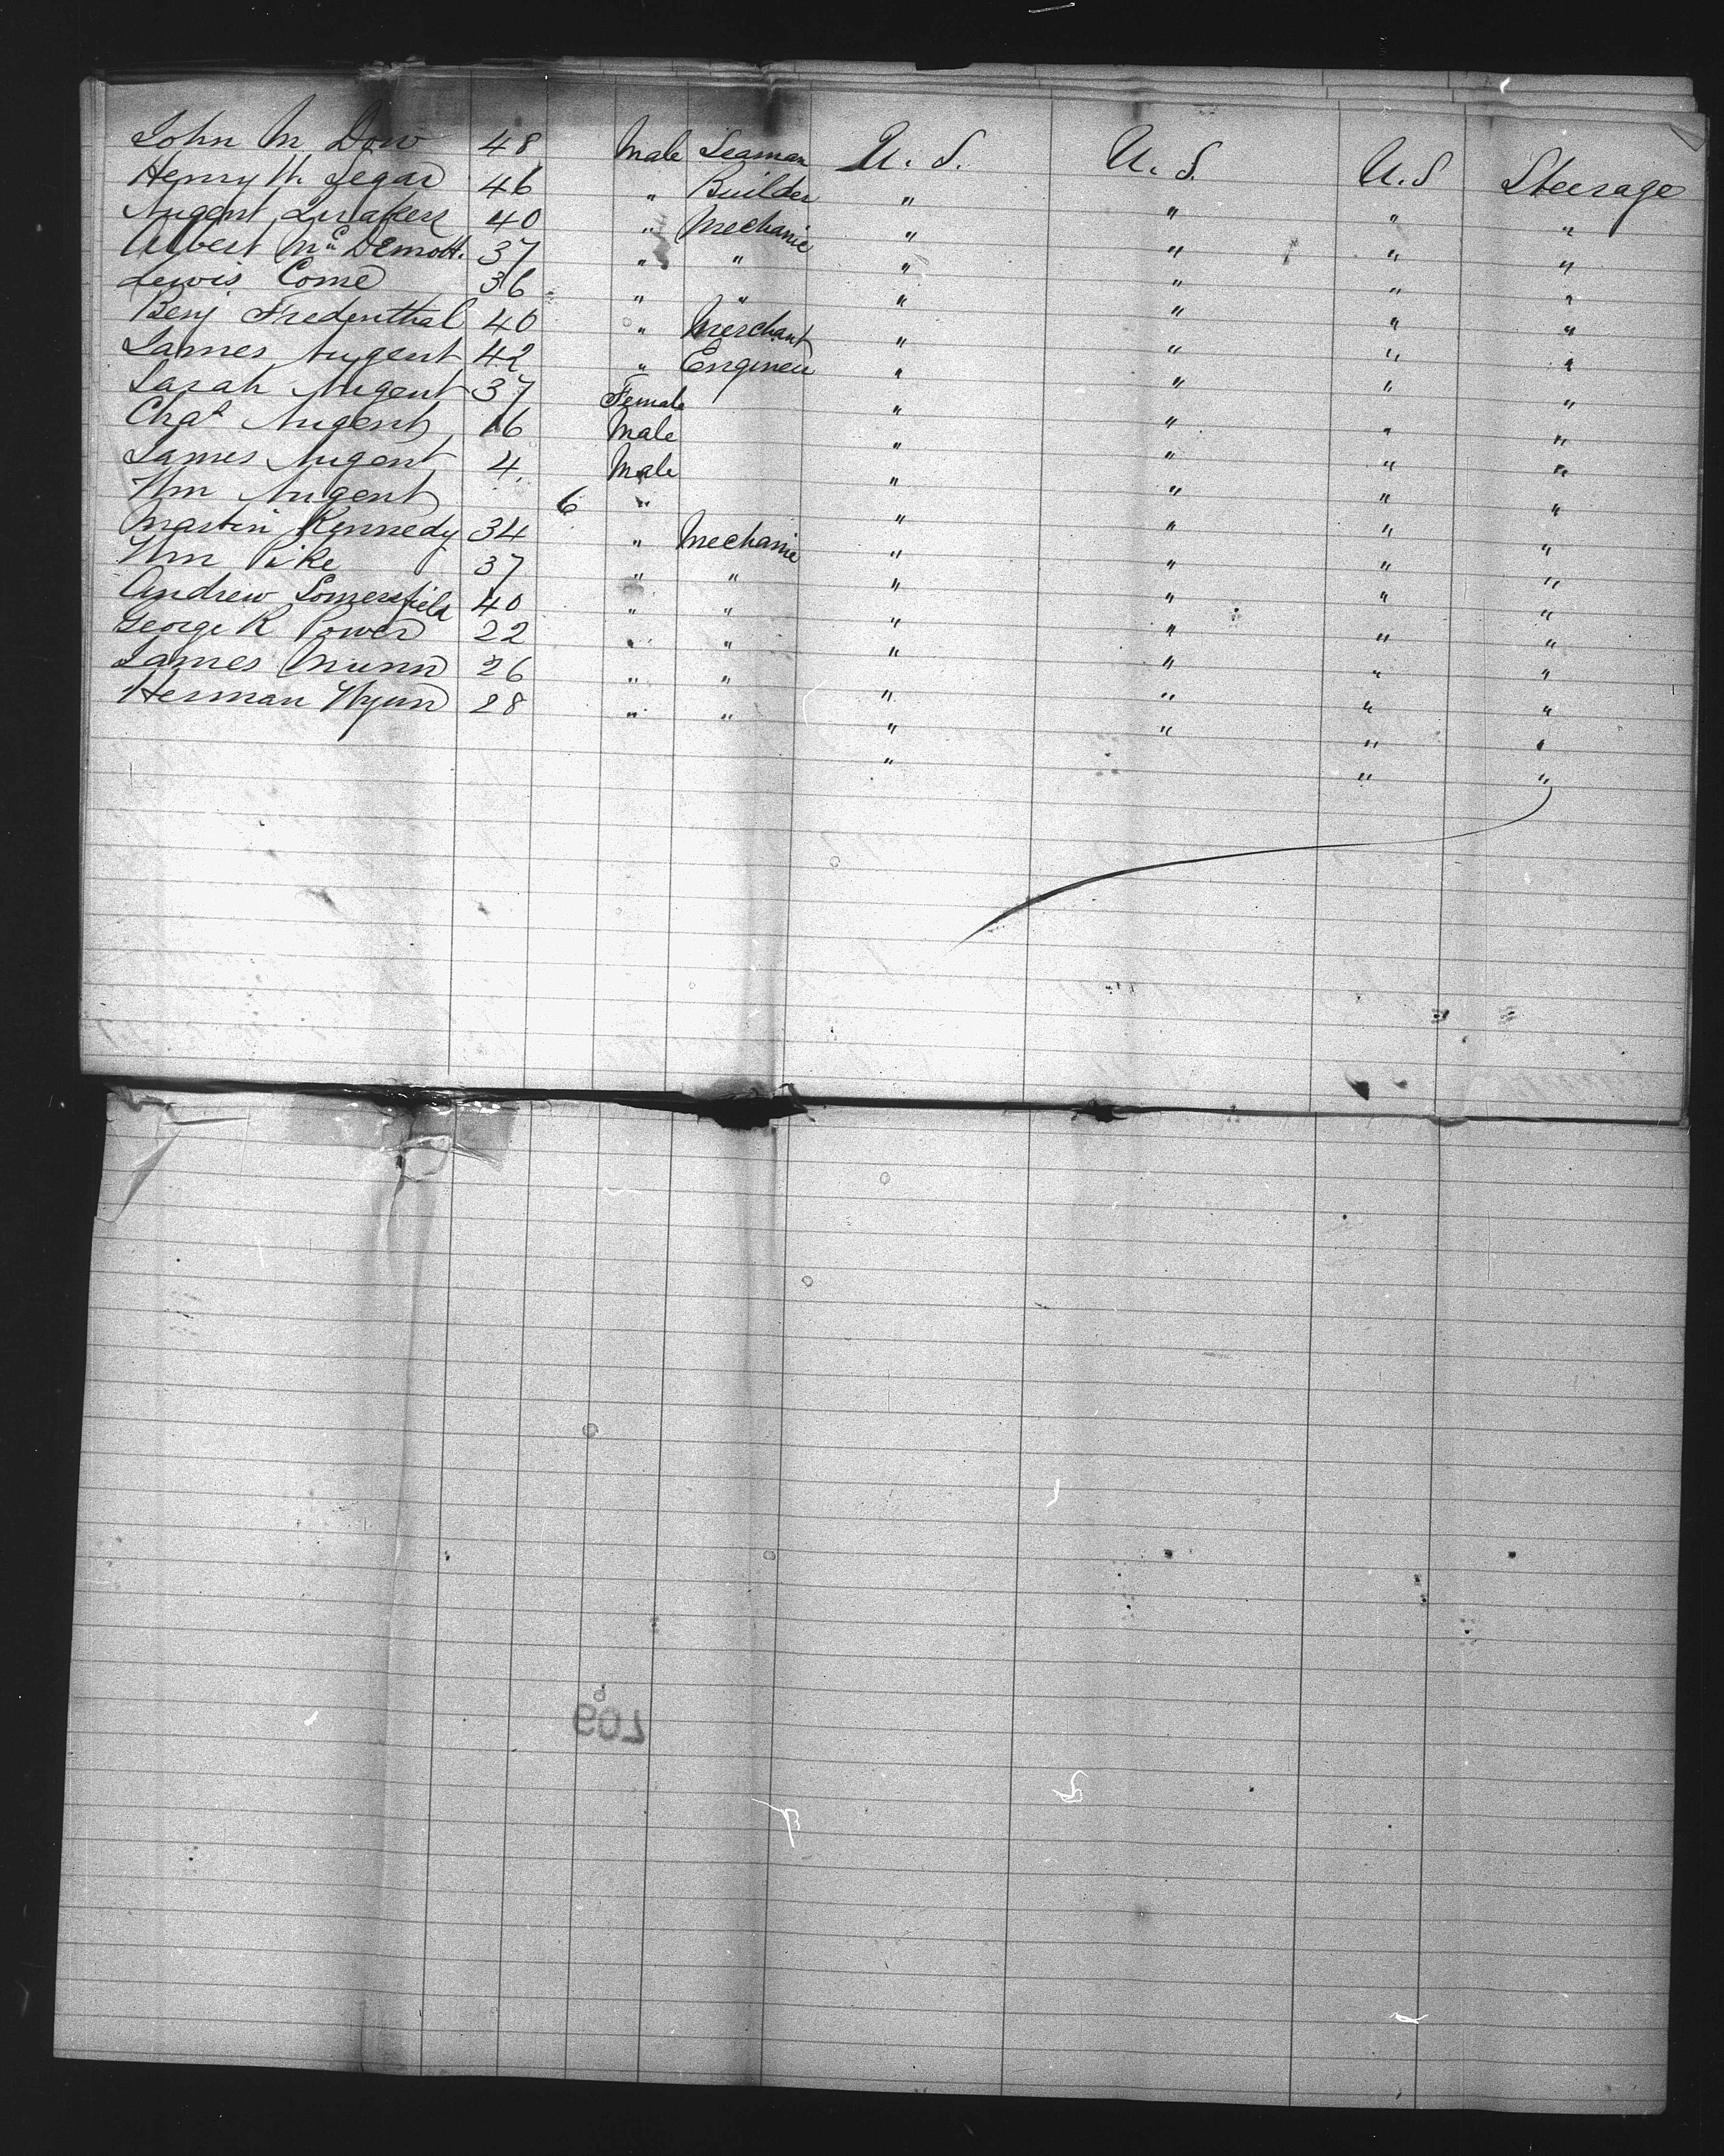 John M Dow 48 Male Seaman U. S. U. S. U. S Steerage
Henry W. Segar 46 " Builder " " " "
Nugent 40 " Mechanic " " " "
Albert McDemott. 37 " " " " " "
Lewis Come 36 " " " " " "
Benj Fredenthal 40 " Merchant " " " "
James Nugent 42 " Engineer " " " "
Sarah Nugent 37 Female " " " "
Chas Nugent 16 Male " " " "
James Nugent 4. Male " " " "
Wm Nugent 6 " " " " "
Martin Kennedy 34 " Mechanic " " " "
Wm Pike 37 " " " " " "
Andrew Somersfield 40 " " " " " "
George R Power 22 " " " " " "
James Munn 26 " " " " " "
Herman Wynn 28 " " " " " "
" " "
607